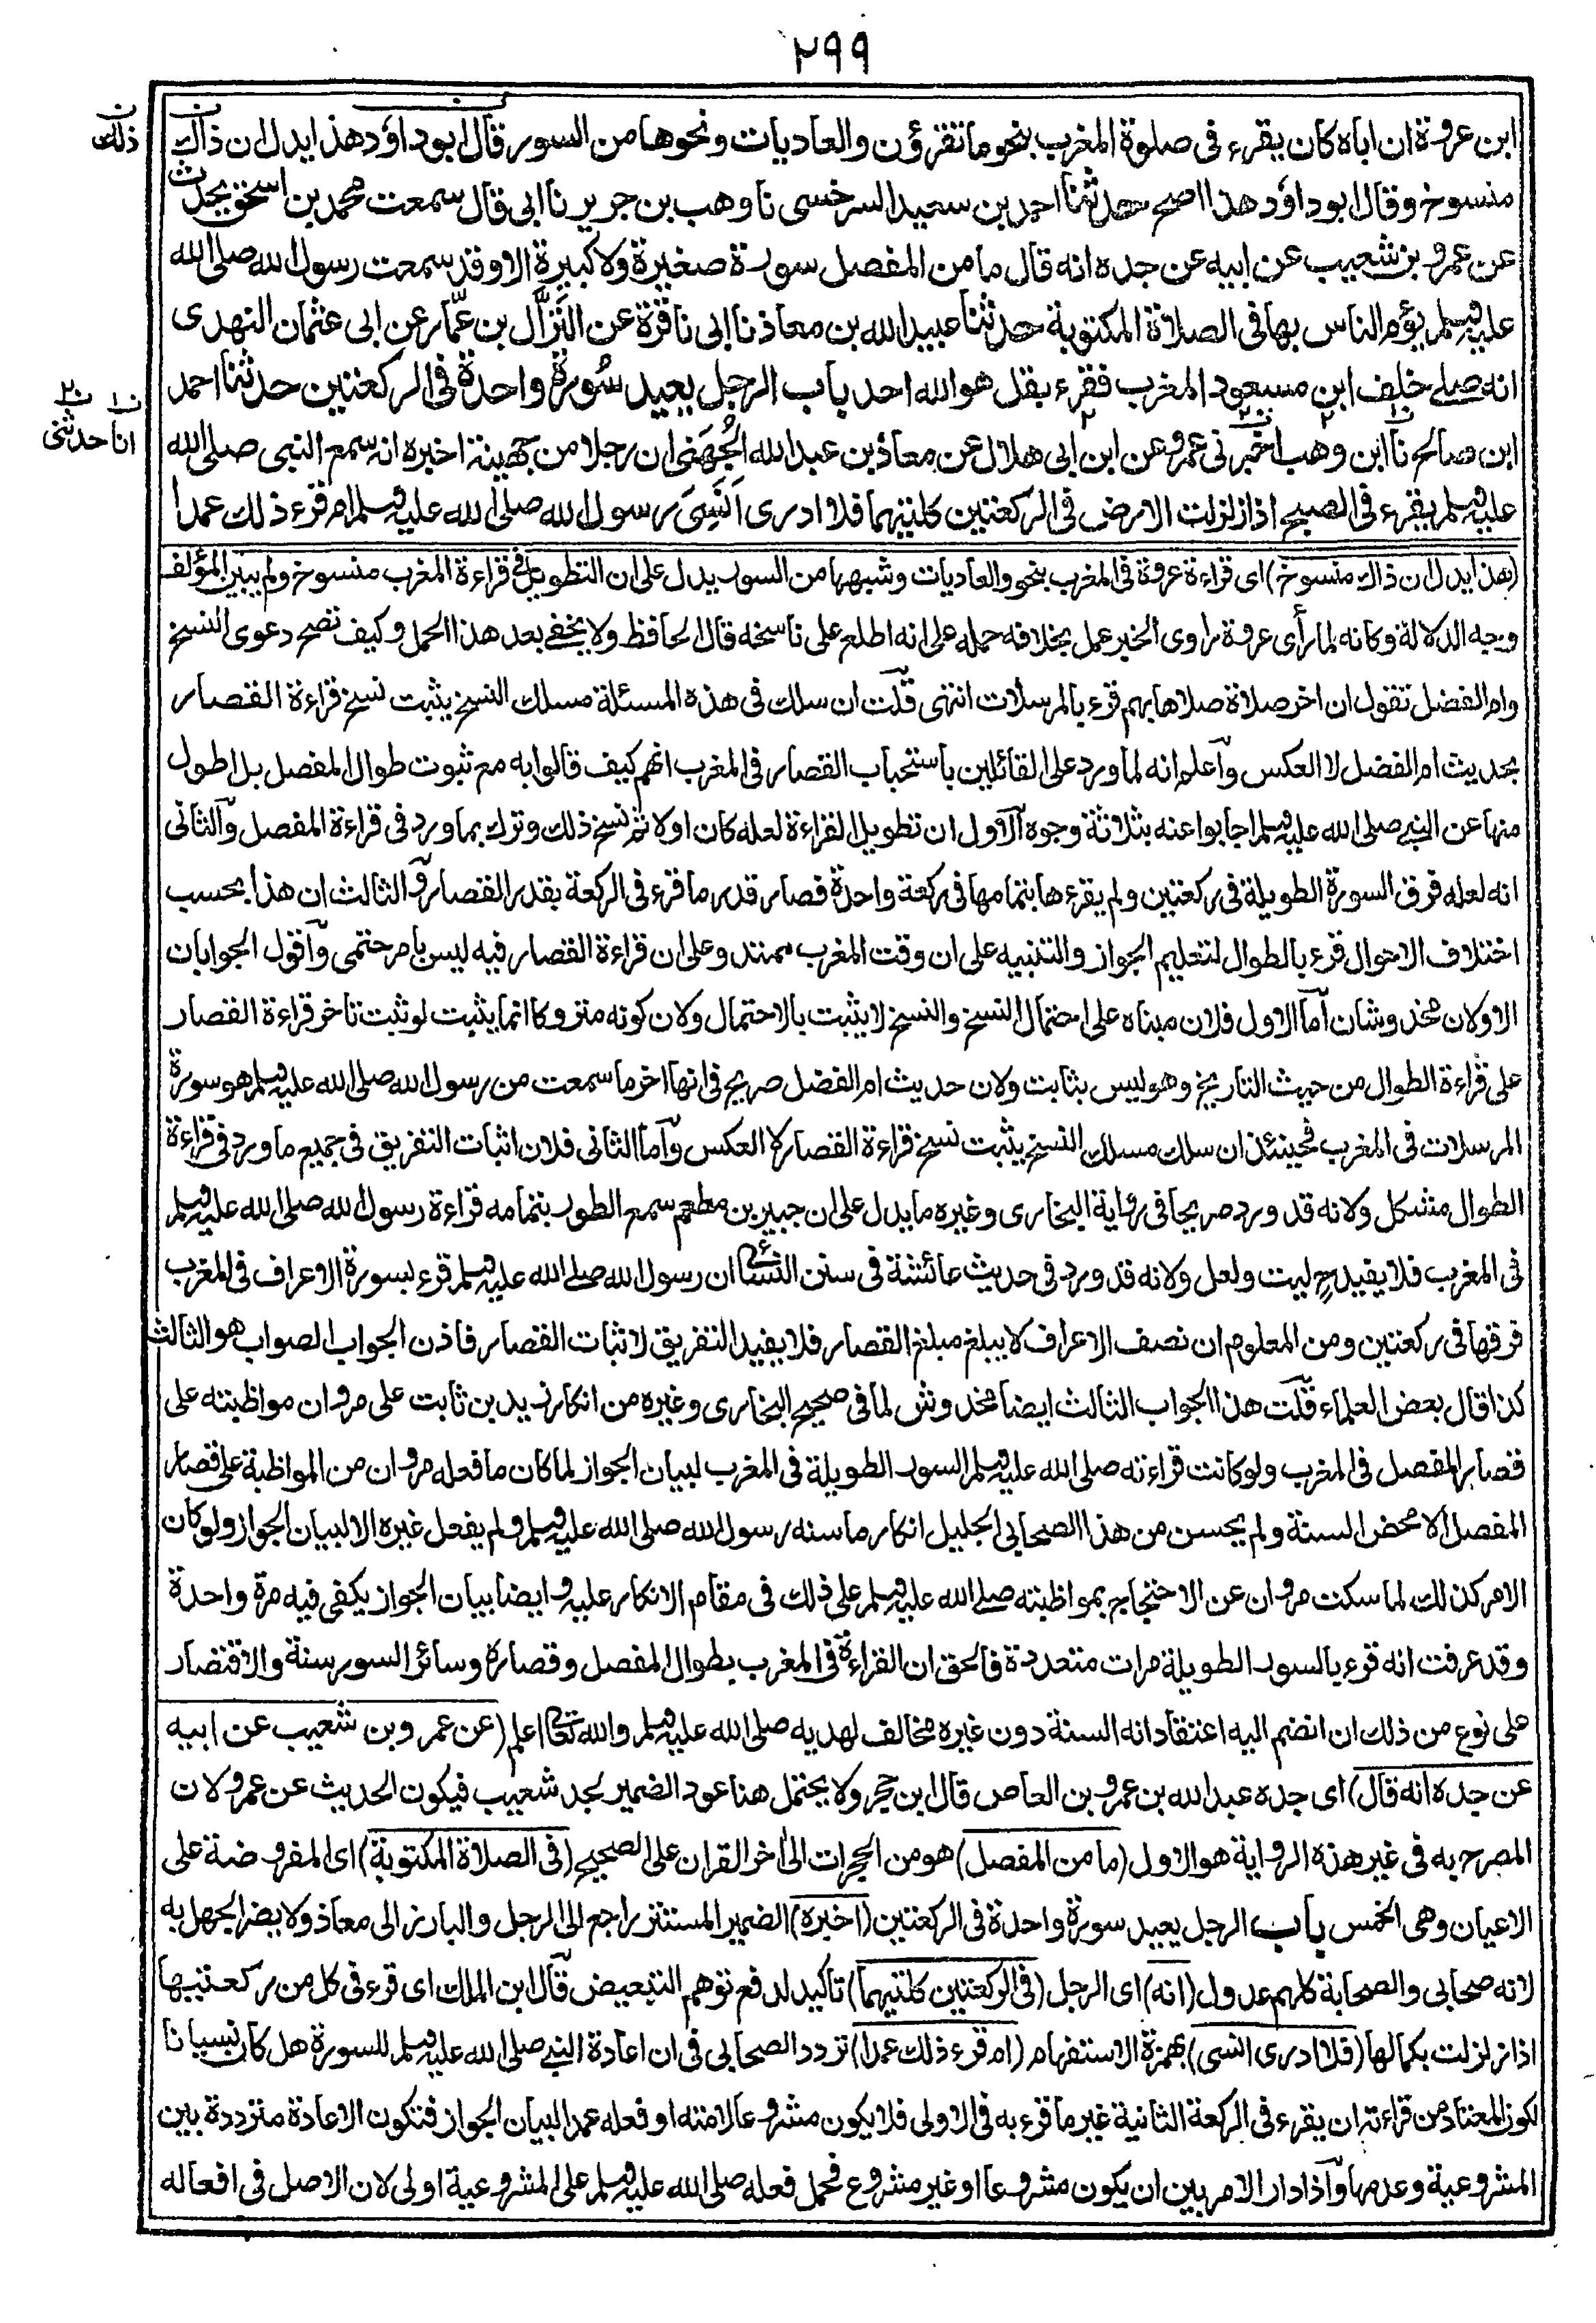 ٢٩٩
ابن عروة ان اباه كان يقرء فى صلوة المغرب بنحو ما تقرؤن والعاديات ونحوها من السور قال ابو داود هذا يدل ان ذاك
ذلك
منسوخ وقال ابو داود هذا اصح حدثنا احمد بن سعيد السرخسى نا وهب بن جرير نا ابى قال سمعت محمد بن اسحق يحدث
عن عمرو بن شعيب عن ابيه عن جده انه قال ما من المفصل سورة صغيرة ولا كبيرة الا وقد سمعت رسول الله صلى الله
عليه وسلم يؤم الناس بها فى الصلاة المكتوبة حدثنا عبيد الله بن معاذ نا ابى نا قرة عن النَزَّال بن عمّار عن ابى عثمان النهدى
انه صلى خلف ابن مسعود المغرب فقرء بقل هو الله احد باب الرجل يعيد سُورة واحدة فى الركعتين حدثنا احمد
ابن صالح نا ابن وهب اخبرنى عمرو عن ابن ابى هلال عن معاذ بن عبد الله الجُهَنى ان رجلا من جهينة اخبره انه سمع النبى صلى الله
انا حدثنى
عليه وسلم يقرء فى الصبح اذا زلزلت الارض فى الركعتين كلتيهما فلا ادرى اَنَسِىَ رسول الله صلى الله عليه وسلم ام قرء ذلك عمدا
(هذا يدل ان ذاك منسوخ) اى قراءة عروة فى المغرب بنحو والعاديات وشبهها من السور يدل على ان التطويل فى قراءة المغرب منسوخ ولم يبين المؤلف
وجه الدلالة وكانه لما رأى عروة راوى الخبر عمل بخلافه حمله على انه اطلع على ناسخه قال الحافظ ولا يخفى بعد هذا الحمل وكيف تصح دعوى النسخ
وام الفضل تقول ان اخر صلاة صلاها بهم قرء بالمرسلات انتهى قلت ان سلك فى هذه المسئلة مسلك النسخ يثبت نسخ قراءة القصار
بحديث ام الفضل لا العكس واعلم انه لما ورد على القائلين باستحباب القصار فى المغرب انهم كيف قالوا به مع ثبوت طوال المفصل بل اطول
منها عن النبى صلى الله عليه وسلم اجابوا عنه بثلاثة وجوه الاول ان تطويل القراءة لعله كان اولا ثم نسخ ذلك وترك بما ورد فى قراءة المفصل والثانى
انه لعله فرق السورة الطويلة فى ركعتين ولم يقرءها بتمامها فى ركعة واحدة فصار قدر ما قرء فى الركعة بقدر القصار والثالث ان هذا بحسب
اختلاف الاحوال قرء بالطوال لتعليم الجواز والتنبيه على ان وقت المغرب ممتد وعلى ان قراءة القصار فيه ليس بامر حتمى واقول الجوابان
الاولان مخدوشان اما الاول فلان مبناه على احتمال النسخ والنسخ لا يثبت بالاحتمال ولان كونه متروكا انما يثبت لو ثبت تاخر قراءة القصار
على قراءة الطوال من حيث التاريخ وهو ليس بثابت ولان حديث ام الفضل صريح فى انها اخر ما سمعت من رسول الله صلى الله عليه وسلم هو سورة
المرسلات فى المغرب فحينئذ ان سلك مسلك النسخ يثبت نسخ قراءة القصار لا العكس واما الثانى فلان اثبات التفريق فى جميع ما ورد فى قراءة
الطوال مشكل ولانه قد ورد صريحا فى رواية البخارى وغيره ما يدل على ان جبير بن مطعم سمع الطور بتمامه قراءة رسول الله صلى الله عليه وسلم
فى المغرب فلا يفيد ح ليت ولعل ولانه قد ورد فى حديث عائشة فى سنن النسائى ان رسول الله صلى الله عليه وسلم قرء بسورة الاعراف فى المغرب
فرقها فى ركعتين ومن المعلوم ان نصف الاعراف لا يبلغ مبلغ القصار فلا يفيد التفريق لاثبات القصار فاذن الجواب الصواب هو الثالث
كذا قال بعض العلماء قلت هذا الجواب الثالث ايضا مخدوش لما فى صحيح البخارى وغيره من انكار زيد بن ثابت على مروان مواظبته على
قصار المفصل فى المغرب ولو كانت قراءته صلى الله عليه وسلم السور الطويلة فى المغرب لبيان الجواز لما كان ما فعله مروان من المواظبة على قصار
المفصل الا محض السنة ولم يحسن من هذا الصحابى الجليل انكار ما سنه رسول الله صلى الله عليه وسلم ولم يفعل غيره الا لبيان الجواز ولو كان
الامر كذلك لما سكت مروان عن الاحتجاج بمواظبته صلى الله عليه وسلم على ذلك فى مقام الانكار عليه وايضا بيان الجواز يكفى فيه مرة واحدة
وقد عرفت انه قرء بالسور الطويلة مرات متعددة فالحق ان القراءة فى المغرب بطوال المفصل وقصاره وسائر السور سنة والاقتصار
على نوع من ذلك ان انضم اليه اعتقاد انه السنة دون غيره مخالف لهديه صلى الله عليه وسلم والله تعالى اعلم (عن عمرو بن شعيب عن ابيه
عن جده انه قال) اى جده عبد الله بن عمرو بن العاص قال ابن حجر ولا يحتمل هنا عود الضمير لجد شعيب فيكون الحديث عن عمرو لان
المصرح به فى غير هذه الرواية هو الاول (ما من المفصل) هو من الحجرات الى اخر القران على الصحيح (فى الصلاة المكتوبة) اى المفروضة على
الاعيان وهى الخمس باب الرجل يعيد سورة واحدة فى الركعتين (اخبره) الضمير المستتر راجع الى الرجل والبارز الى معاذ ولا يضر الجهل به
لانه صحابى والصحابة كلهم عدول (انه) اى الرجل (فى الركعتين كلتيهما) تاكيد لدفع توهم التبعيض قال ابن الملك اى قرء فى كل من ركعتيها
اذا زلزلت بكمالها (فلا ادرى انسى) بهمزة الاستفهام (ام قرء ذلك عمدا) تردد الصحابى فى ان اعادة النبى صلى الله عليه وسلم للسورة هل كان نسيانا
لكون المعتاد من قراءته ان يقرء فى الركعة الثانية غير ما قرء به فى الاولى فلا يكون مشروعا لامته او فعله عمدا لبيان الجواز فتكون الاعادة مترددة بين
المشروعية وعدمها واذا دار الامر بين ان يكون مشروعا او غير مشروع فحمل فعله صلى الله عليه وسلم على المشروعية اولى لان الاصل فى افعاله